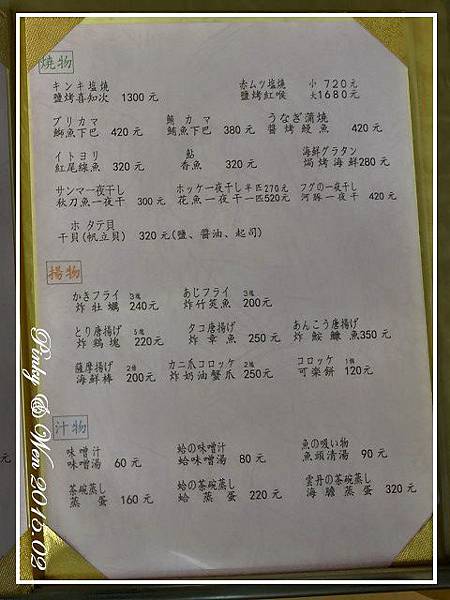 燒物
キンキ塩燒 赤ムツ塩燒 小 720元
鹽烤喜知次 1300元 鹽烤紅喉 大1680元
ブリカマ カマ うなぎ蒲燒
鰤魚下巴 420元 鮪魚下巴 380元 醬烤鰻魚 420元
イトヨリ 鮎 海鮮グラタン
紅尾線魚 320元 香魚 320元 焗烤海鮮280元
サンマ一夜干し ホッケ一夜干し半匹270元 フグの一夜干し
秋刀魚一夜干 300元 花魚一夜干一匹520元 河豚一夜干 420元
ホタテ貝
干貝(帆立貝) 320元(鹽、醬油、起司)
揚物
かきフライ 3塊 あじフライ 3塊
炸牡蠣 240元 炸竹筴魚 200元
とり唐揚げ 5塊 タコ唐揚げ あんこう唐揚げ
炸鶏塊 220元 炸章魚 250元 炸鮟鱇魚350元
薩摩揚げ 2條 カニ爪コロッケ 2塊 コロッケ 1個
海鮮棒 200元 炸奶油蟹爪 250元 可楽餅 120元
汁物
味噌汁 蛤の味噌汁 魚の吸い物
味噌湯 60元 蛤味噌湯 80元 魚頭清湯 90元
茶碗蒸し 蛤の茶碗蒸し 雲丹の茶碗蒸し
蒸蛋 160元 蛤蒸蛋 220元 海膽蒸蛋 320元
元
Pinky @ Wen 2015.02